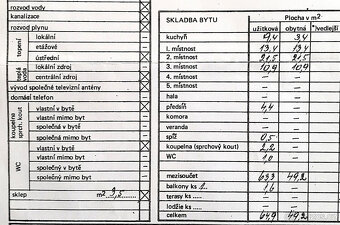 rozvod vody
kanalizace
rozvod plynu
topení
lokální
etážové
ústřední
teplá voda
lokální zdroj
centrální zdroj
vývod společné televizní antény
domácí telefon
koupelna sprch. kout
vlastní v bytě
vlastní mimo byt
společná v bytě
společná mimo byt
WC
vlastní v bytě
vlastní mimo byt
společný v bytě
společný mimo byt
sklep m² 3,5
SKLADBA BYTU Plocha v m²
užitková obytná *)vedlejší
kuchyň 9,4 3,4
1. místnost 13,4 13,4
2. místnost 21,5 21,5
3. místnost 10,9 10,9
4. místnost
5. místnost
hala
předsíň 4,4
komora
veranda
spíž 0,5
koupelna (sprchový kout) 2,2
WC 1,0
mezisoučet 63,3 49,2
balkony ks 1 1,6
terasy ks
lodžie ks
celkem 64,9 49,2